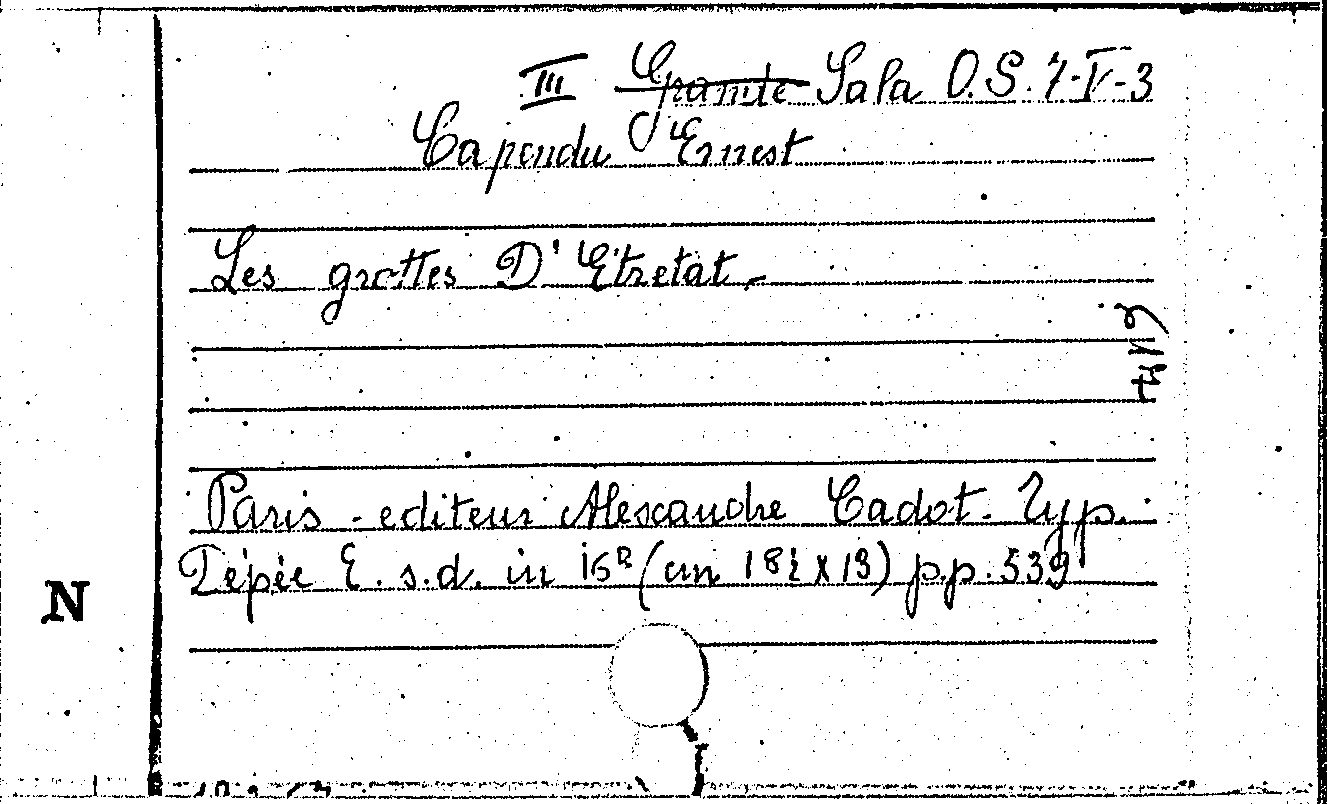 III Sala O.S. 7-V-3
Capendu Ernest
Les grottes D'Etretat.-
Paris - editeur Alexandre Cadot. Typ.
Dépée E. s.d. in 16° (cm 18½ x 13) p.p. 539
N